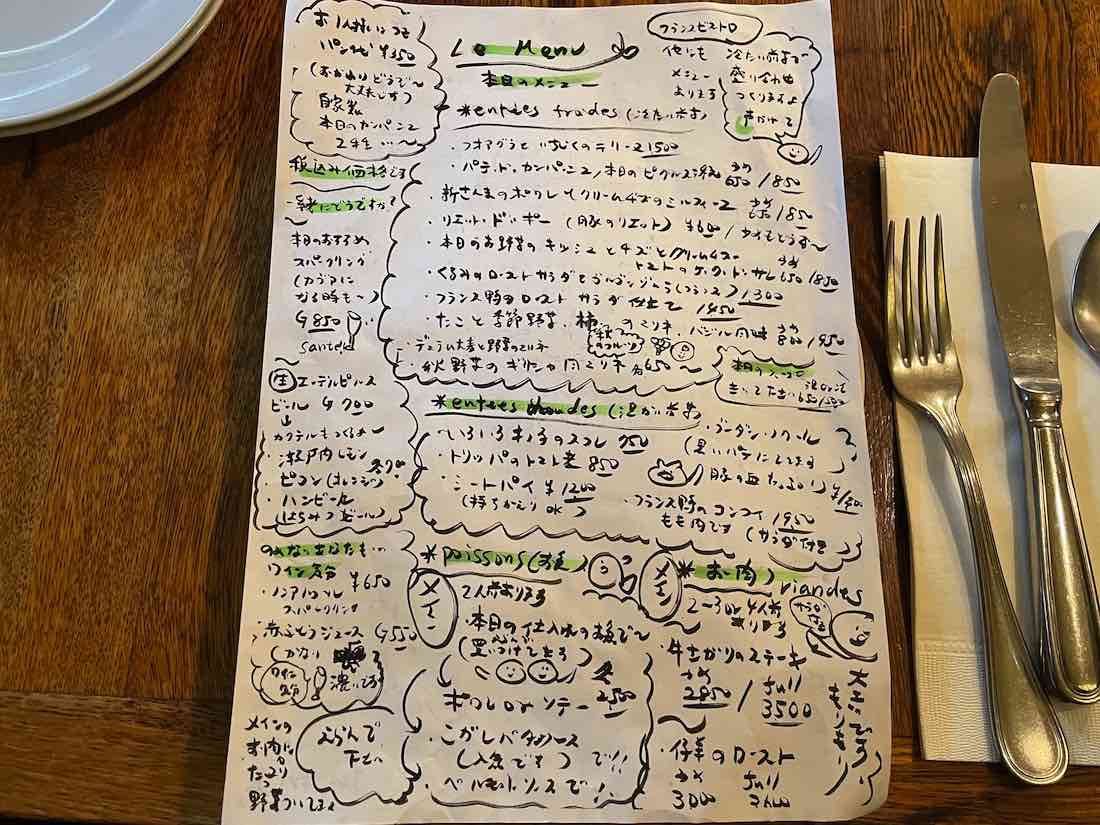 お1人様につき
パン代 ¥350
(おかわりどうぞ〜
大丈夫です)
自家製
本日のカンパーニュ
2種い〜
税込み価格です
一緒にどうですか?
本日のおすすめ
スパークリング
(カヴァに
なる時も〜)
G 850
santé
生 エーデルピルス
ビール G 700
カクテルもつくるよ〜
・瀬戸内レモン
・ピコン(オレンジ)
・ハンビール
(はちみつビール)
のめないあなたも…
ワイン気分
・ノンアルコール ¥650
スパークリング
・赤ぶどうジュース G 550
(かなり
濃いです)
ワイン気分
メインの
お肉に
たっぷり
野菜ついてます
Le Menu
本日のメニュー
フランスビストロ
他にも
メニュー
あります
冷たい前菜
盛り合わせ
つくりますよ
声かけて
*entrées froides (冷たい前菜)
・フォアグラといちじくのテリーヌ 1500
・パテ・ド・カンパーニュ/本日のピクルス添え 少なめ 650/850
・新さんまのポワレとクリームチーズのミルフィーユ 少なめ 650/850
・リエット・ド・ポー (豚のリエット) ¥600
・本日のお野菜のキッシュとチーズとクリームチーズ
トマトのケーク・サレ 650/850
・くるみのローストサラダとゴルゴンゾーラ(フランス) 1300
・フランス鴨のロースト サラダ仕立て 1450
・たこと季節野菜、柿のマリネ・バジル風味 少なめ 800/950
秋のフルーツ
・デュラム大麦と野菜のマリネ
・秋野菜のギリシャ風マリネ 650〜
本日のスープ
きいて下さい
650/
*entrées chaudes (温かい前菜)
・いろいろキノコのソテー 950
・トリッパのトマト煮 850
・ミートパイ ¥1200
(持ちかえりOK)
・ブーダン・ノワール
(黒いパテにしてます)
豚の血
・フランス鴨のコンフィ 1950
もも肉です (サラダ付き)
*poissons (お魚)
メイン
2人前あります
・本日の仕入れの魚で〜
(買いつけてきます)
ポワレorソテー 2500
・こがしバターソース
(人気です) で!!
・ベルモットソースで!!
えらんで
下さい
メイン
*お肉 viandes
2〜3or4人前
あります
・牛さがりのステーキ
少なめ 2850 / full 3500
・仔羊のロースト
少なめ full